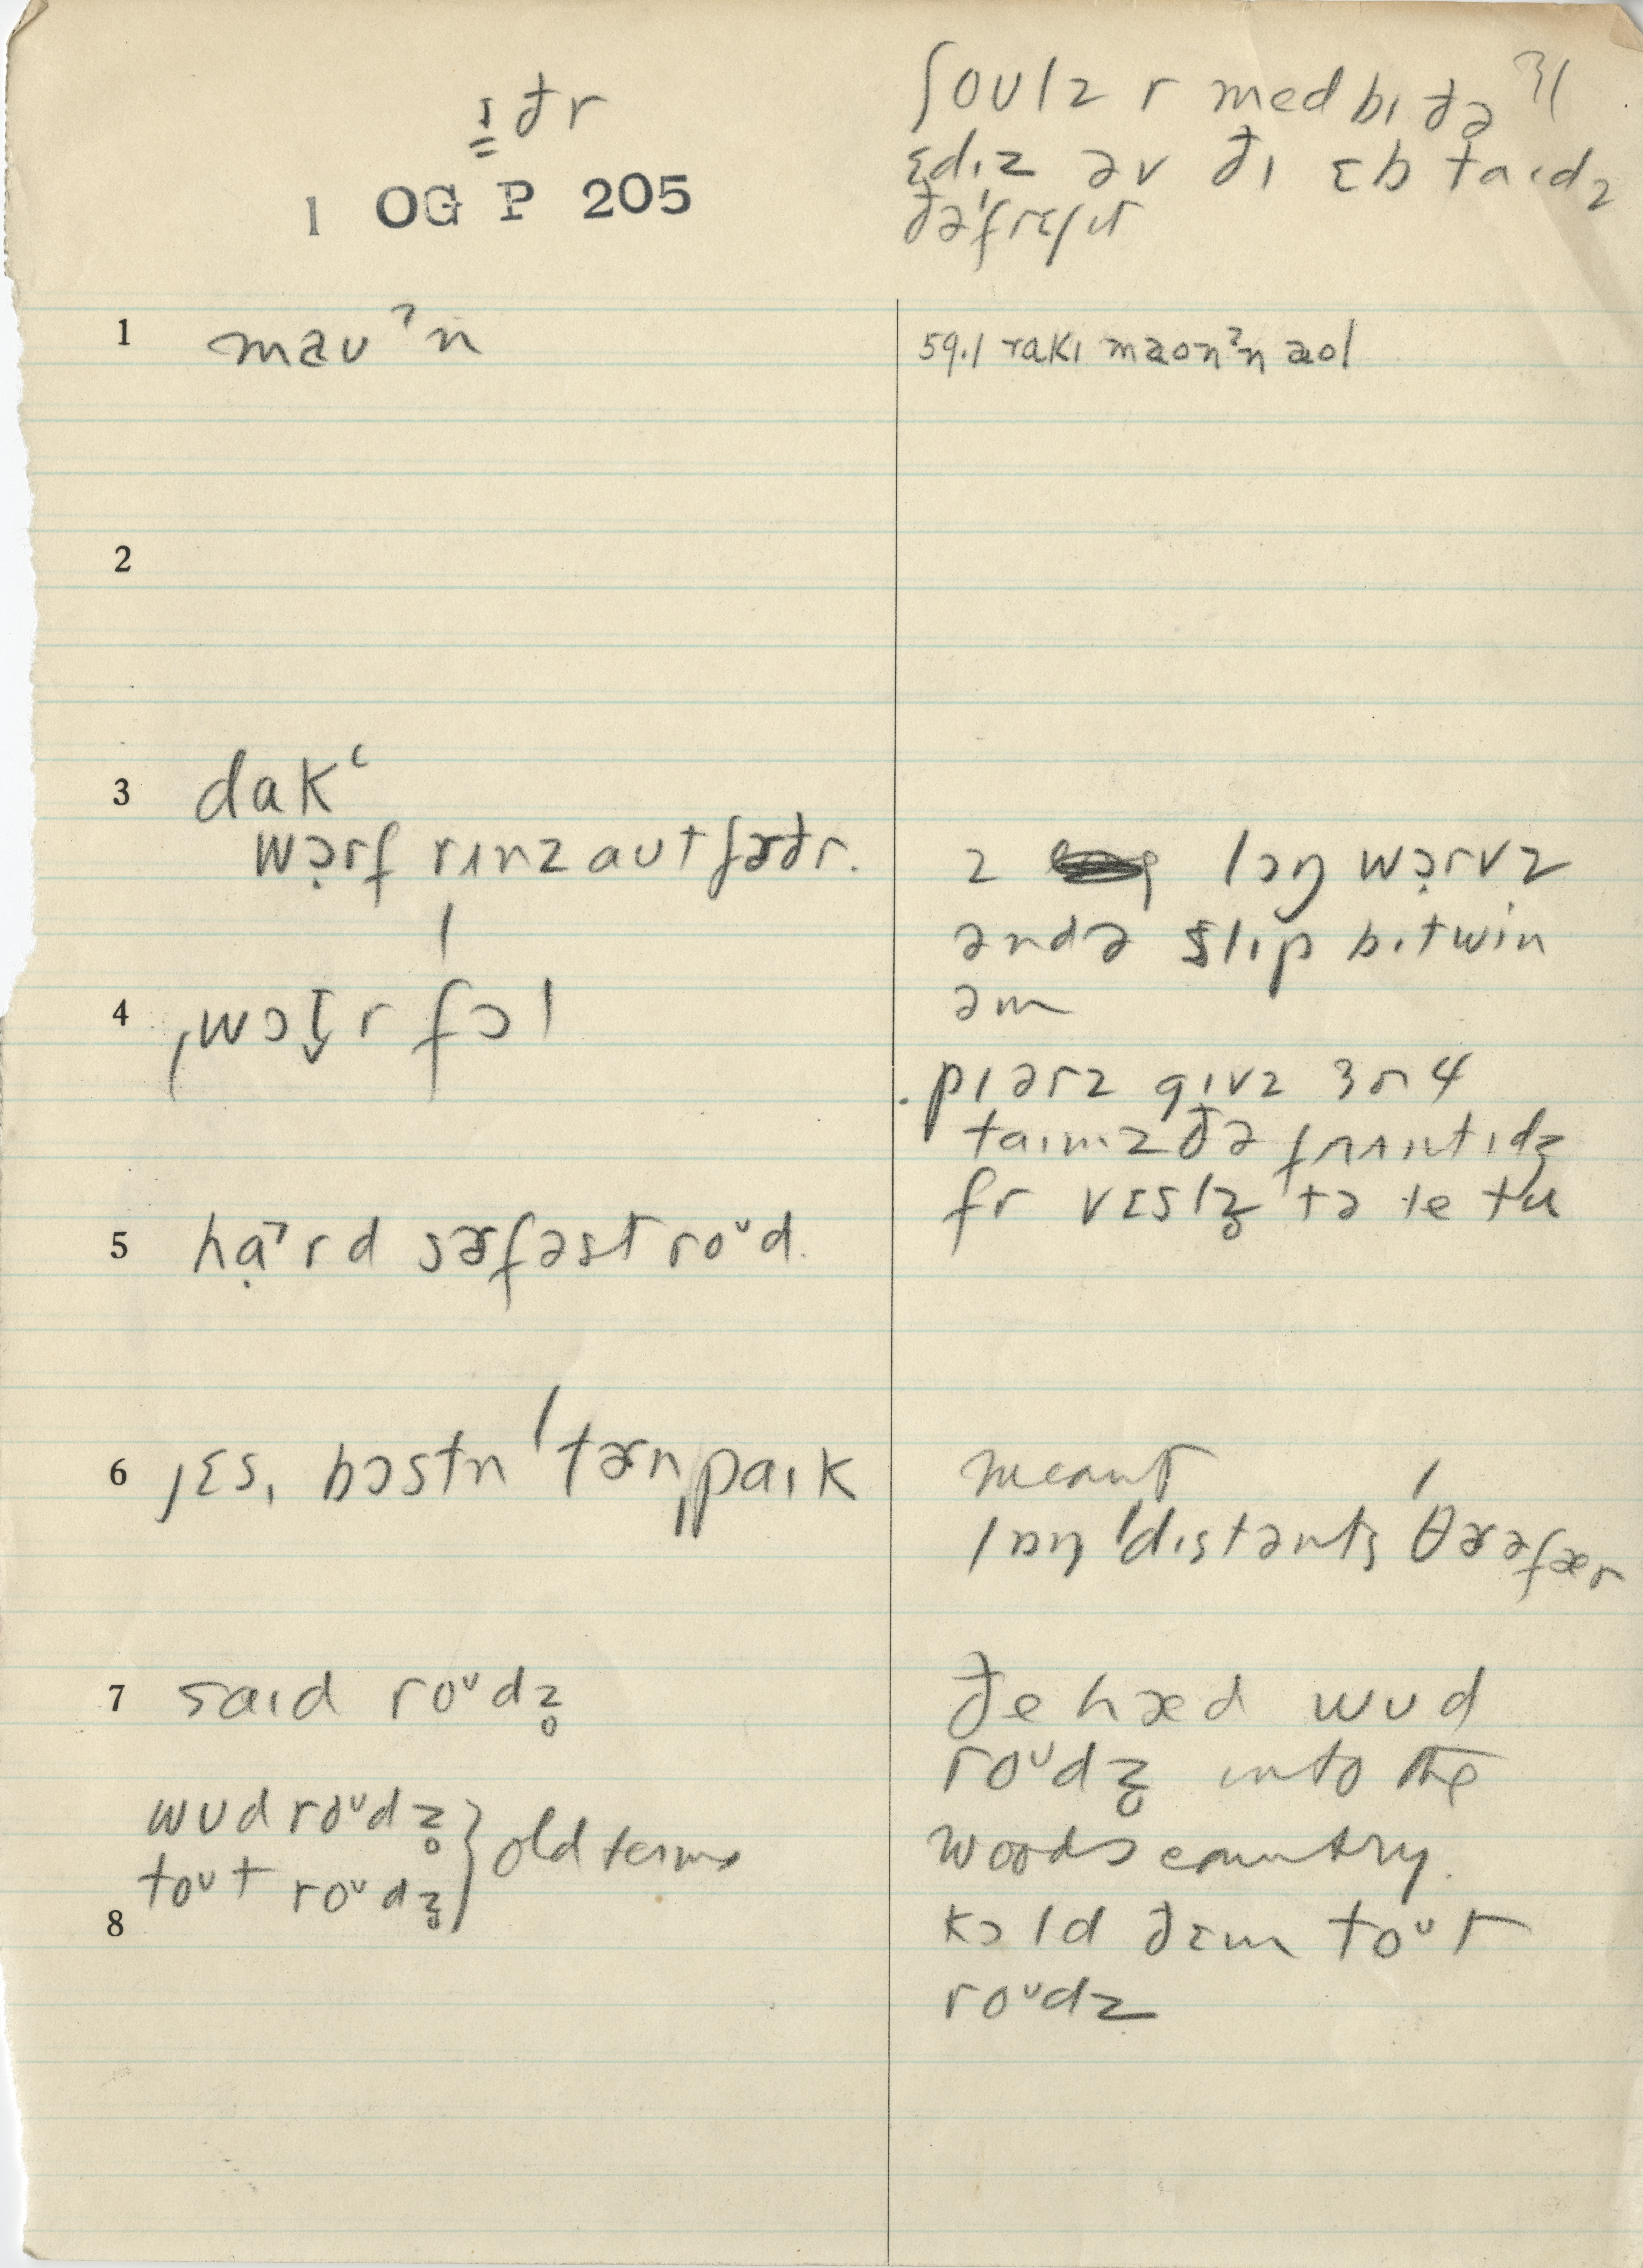 i̳ðr
1 OG P 205
ʃoulz r med bɪ ðə
ɛdɪz əv ðɪ ɛb taɪdz
ðə'frɛʃɪt
1 maʊˀn
59.1 rakɪ maonˀn aol
2
3 dakʿ
wɔ̣rf rʌnz aʊt fɚðr.
2 lɔŋ wɔ̣rvz
ənd ə slɪp bɪtwin
əm
4 ˌwɔt̬r fɔl
pɪərz gɪvz 3 r 4
taɪmz ðə frʌntɪdʒ
fr vɛslz̥ tə le tu
5 hạˀrd sɚfəst roᶷd.
6 jɛs, bɔstn 'tɚnˌpaɪk
meant
lɒŋ 'dɪstənts 'θɚəfær
7 saɪd roᶷdz̥
ðe hæd wʊd
roᶷdz̥ into the
wʊd roᶷdz̥ } old terms
woods country.
toᶷt roᶷdz̥
8
kɔld ðɛm toᶷt
roᶷdz